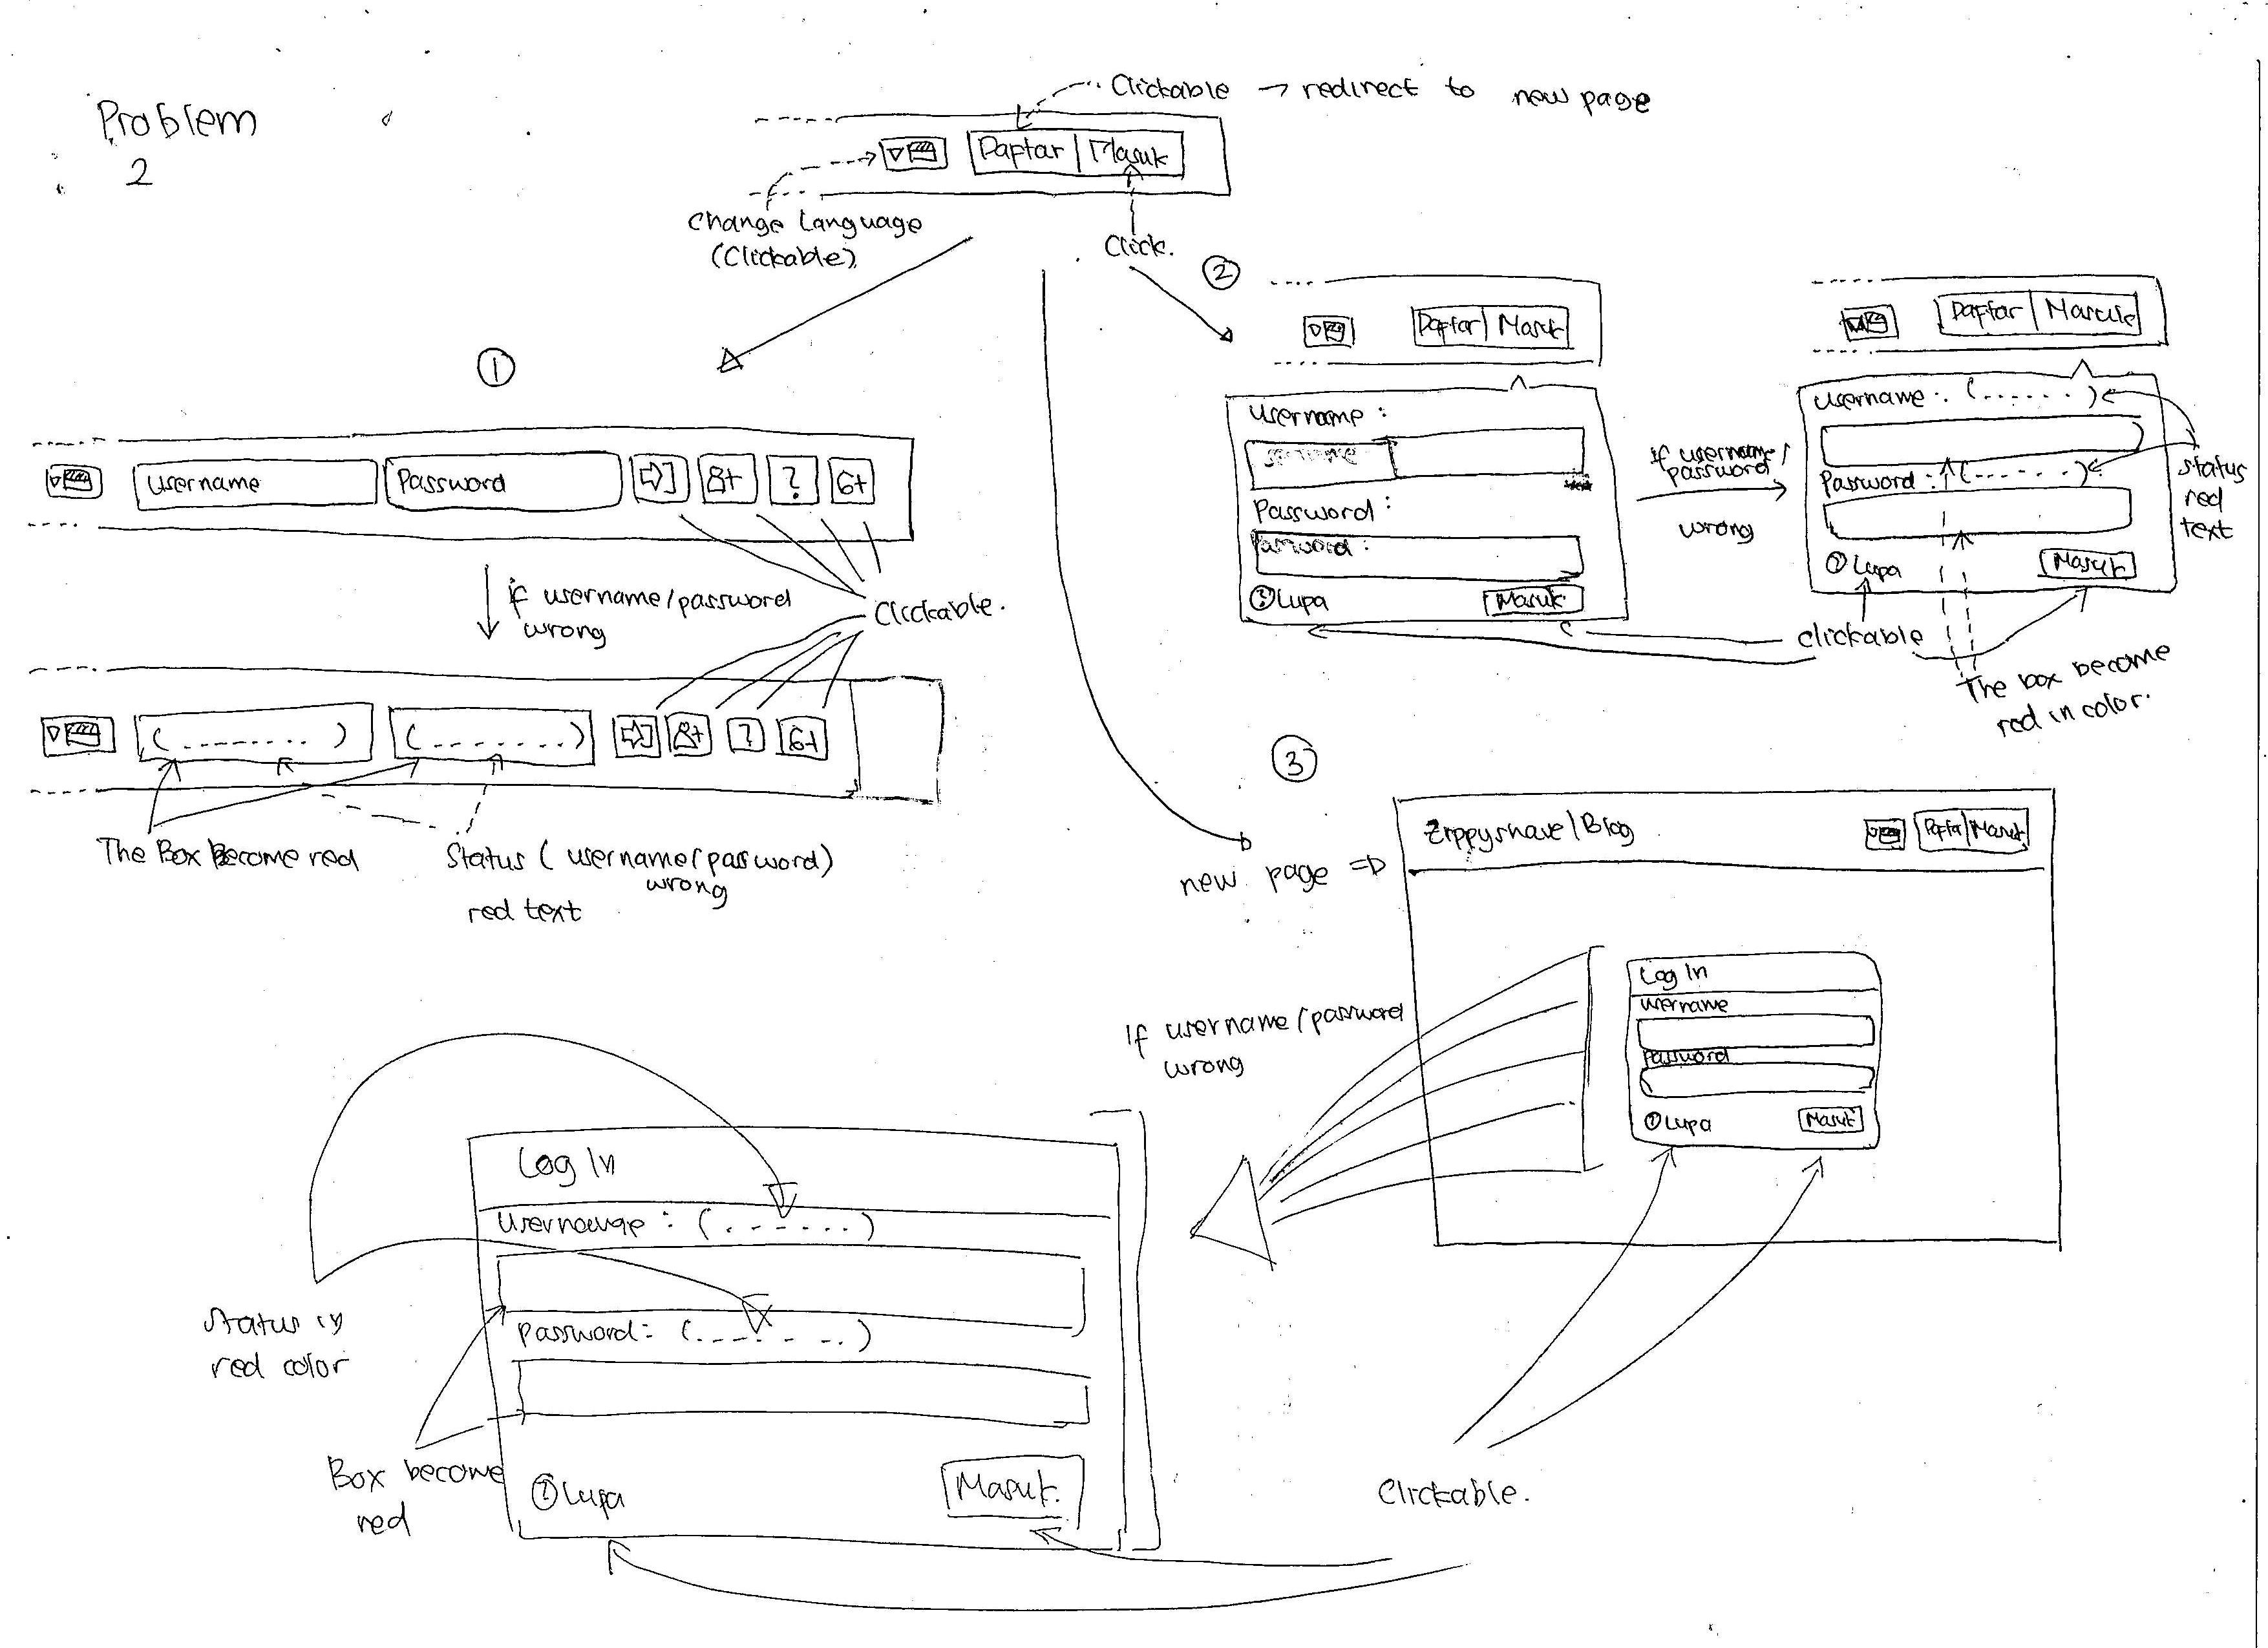 Problem
2
Clickable → redirect to new page
Daftar
Masuk
Change Language
(Clickable)
Click.
1
username
Password
8+
?
G+
if username/password
wrong
Clickable.
( ........ )
( ....... )
8+
?
G+
The Box Become red
Status ( username/password)
wrong
red text
2
Daftar
Masuk
username :
Password :
Password :
? Lupa
Masuk
If username/
password
wrong
Daftar
Masuk
Username : (......)
Password : (......)
Status
red
text
? Lupa
Masuk
clickable
The box become
red in color.
3
new page ⇒
Zippyshare/Blog
Daftar
Masuk
Log In
username
Password
? Lupa
Masuk
If username/password
wrong
Log In
: (.......)
Password: (.......)
? Lupa
Masuk.
Status in
red color
Box become
red
Clickable.